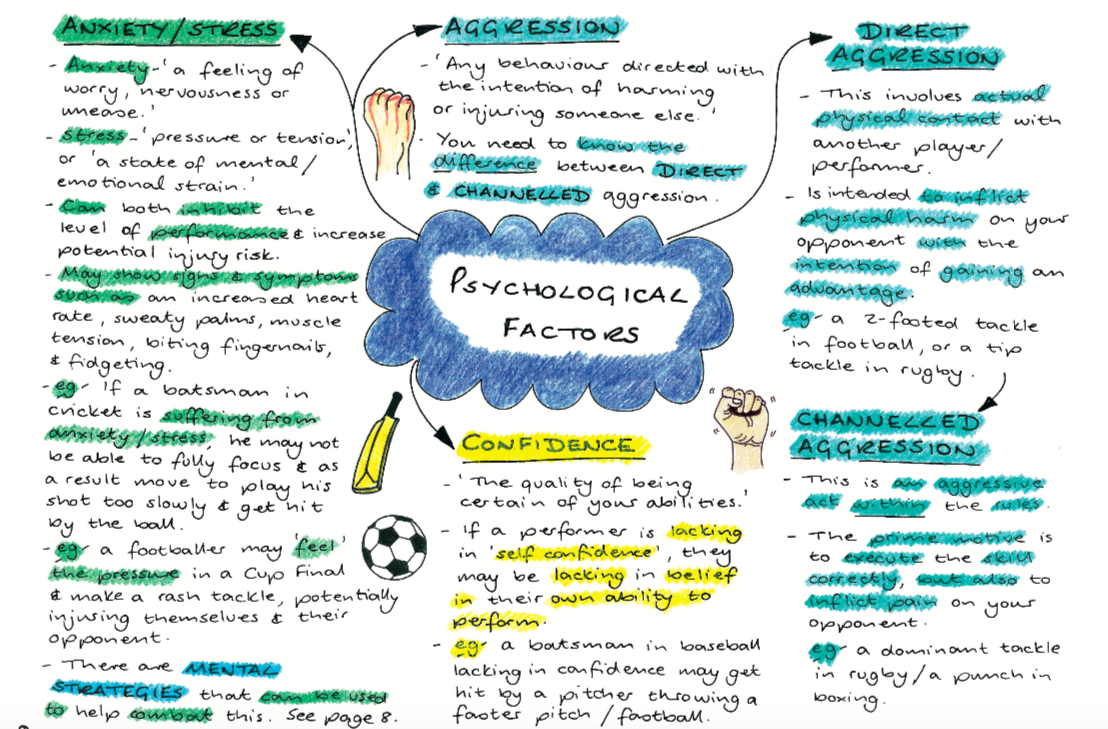 ANXIETY/STRESS
- Anxiety - 'a feeling of
worry, nervousness or
unease.'
- Stress - 'pressure or tension',
or 'a state of mental/
emotional strain.'
- Can both inhibit the
level of performance & increase
potential injury risk.
- May show signs & symptoms
such as an increased heart
rate, sweaty palms, muscle
tension, biting fingernails,
& fidgeting.
- eg - If a batsman in
cricket is suffering from
anxiety/stress, he may not
be able to fully focus & as
a result move to play his
shot too slowly & get hit
by the ball.
- eg - a footballer may 'feel'
the pressure in a Cup Final
& make a rash tackle, potentially
injuring themselves & their
opponent.
- There are MENTAL
STRATEGIES that can be used
to help combat this. See page 8.
AGGRESSION
- 'Any behaviour directed with
the intention of harming
or injuring someone else.'
- You need to know the
difference between DIRECT
& CHANNELLED aggression.
PSYCHOLOGICAL
FACTORS
CONFIDENCE
- 'The quality of being
certain of your abilities.'
- If a performer is lacking
in 'self confidence', they
may be lacking in belief
in their own ability to
perform.
- eg - a batsman in baseball
lacking in confidence may get
hit by a pitcher throwing a
faster pitch / football.
DIRECT
AGGRESSION
- This involves actual
physical contact with
another player/
performer.
- Is intended to inflict
physical harm on your
opponent with the
intention of gaining an
advantage.
eg - a 2-footed tackle
in football, or a tip
tackle in rugby.
CHANNELLED
AGGRESSION
- This is an aggressive
act within the rules.
- The prime motive is
to execute the skill
correctly, but also to
inflict pain on your
opponent.
eg - a dominant tackle
in rugby/a punch in
boxing.